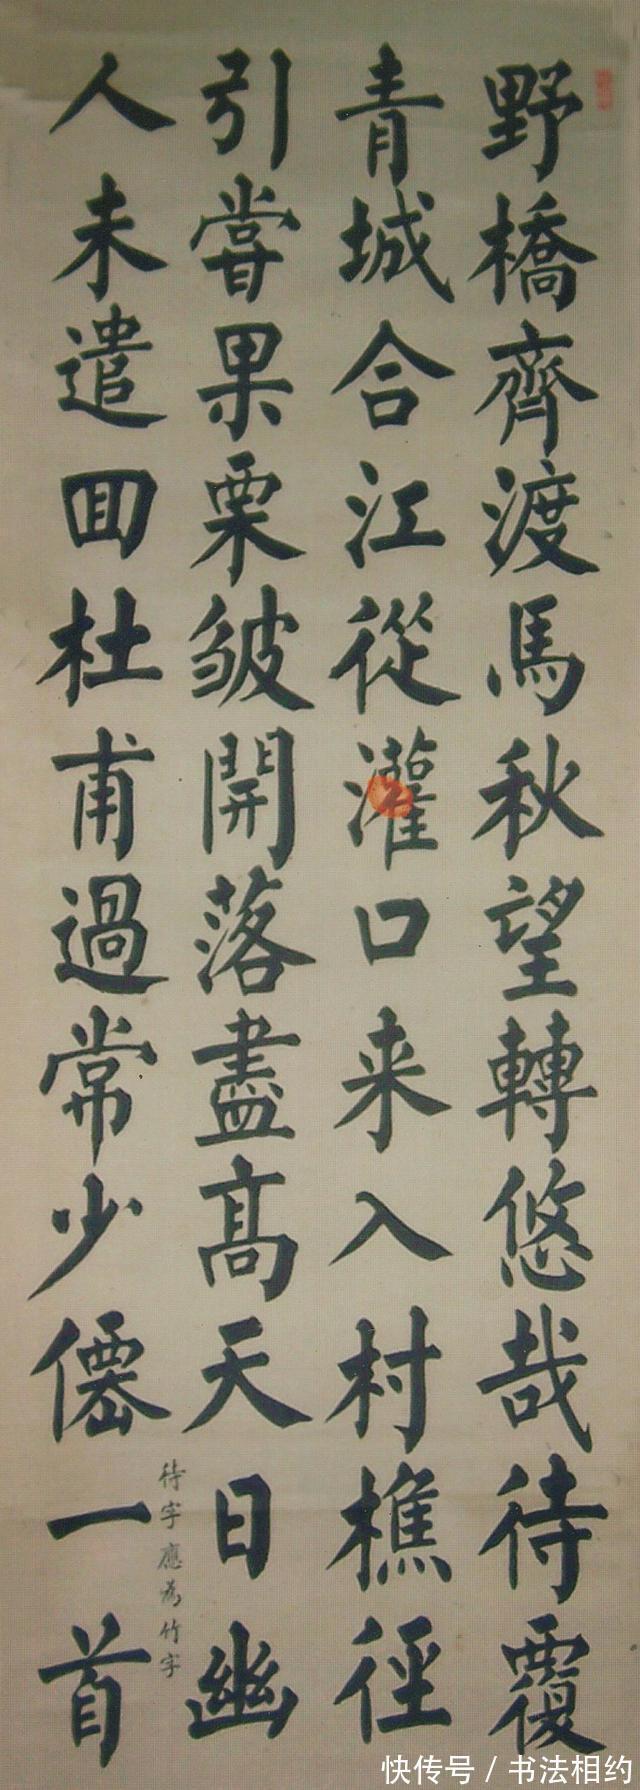 野橋齊渡馬秋望轉悠哉待覆
青城合江從灌口来入村樵徑
引嘗果栗皱開落盡髙天日幽
人未遣囬杜甫過常少僊一首
待字應為竹字
快传号/书法相约